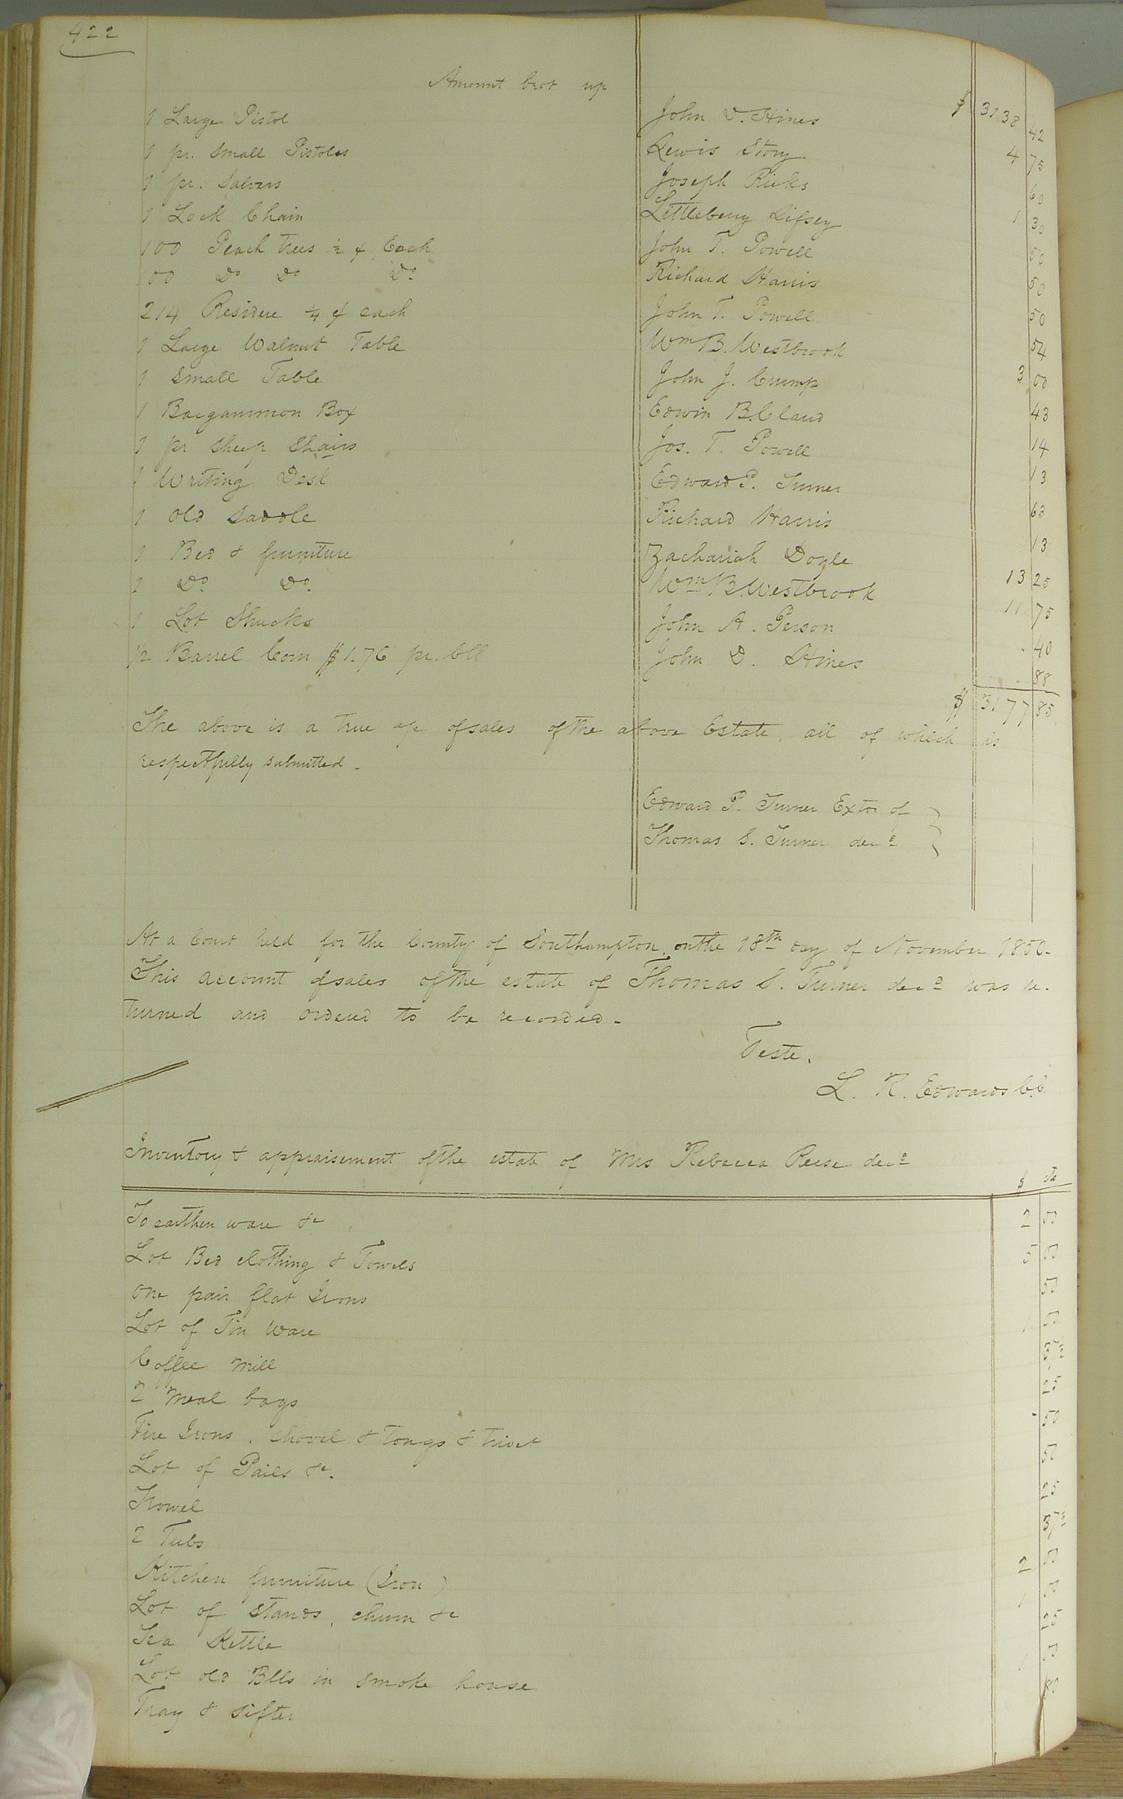 422
Amount brot up $ 3138 42
1 Large Pistol John D. Hines 4 75
1 pr. Small Pistoles Lewis Story 60
1 pr. Salvers Joseph Ricks 1 30
1 Lock Chain Littleberry Lifsey 50
100 Peach trees ½ ¢ Each John T. Powell 50
100 Do Do Do Richard Harris 50
214 Residue ¼ ¢ each John T. Powell 54
1 Large Walnut Table Wm B. Westbrook 3 00
1 Small Table John J. Crump 43
1 Bacgammon Box Edwin B. Claud 14
1 pr Sheep Shairs Jos. T. Powell 13
1 Writing Desk Edward P. Turner 63
1 Old Saddle Richard Harris 13
1 Bed & furniture Zachariah Dogle 13 25
1 Do. Do. Wm B. Westbrook 11 75
1 Lot Shucks John A. Person 40
½ Barrel Corn $1.76 pr. bll John D. Hines 88
$ 3177 85
The above is a true a/c of sales of the above Estate, all of which is
respectfully submitted.
Edward P. Turner Extor of
Thomas S. Turner decd
At a Court held for the County of Southampton, on the 18th day of November 1850.
This account of sales of the estate of Thomas S. Turner decd was re-
turned and ordered to be recorded.
Teste.
L. R. Edwards C.C.
Inventory & appraisement of the estate of Mrs Rebecca Reese decd
$ cts
To earthen ware &c 2 00
Lot Bed clothing & Towels 5 00
One pair flat Irons 50
Lot of Tin Ware 50
Coffee Mill 37½
2 Meal bags 25
Fire Irons, shovel & tongs & trivet 50
Lot of Pails &c. 50
Trowel 25
2 Tubs 37½
Kitchen furniture (Iron) 2 00
Lot of Stands, churn &c 1 00
Tea Kettle 25
Lot old Blls in smoke house 1 00
Tray & sifter